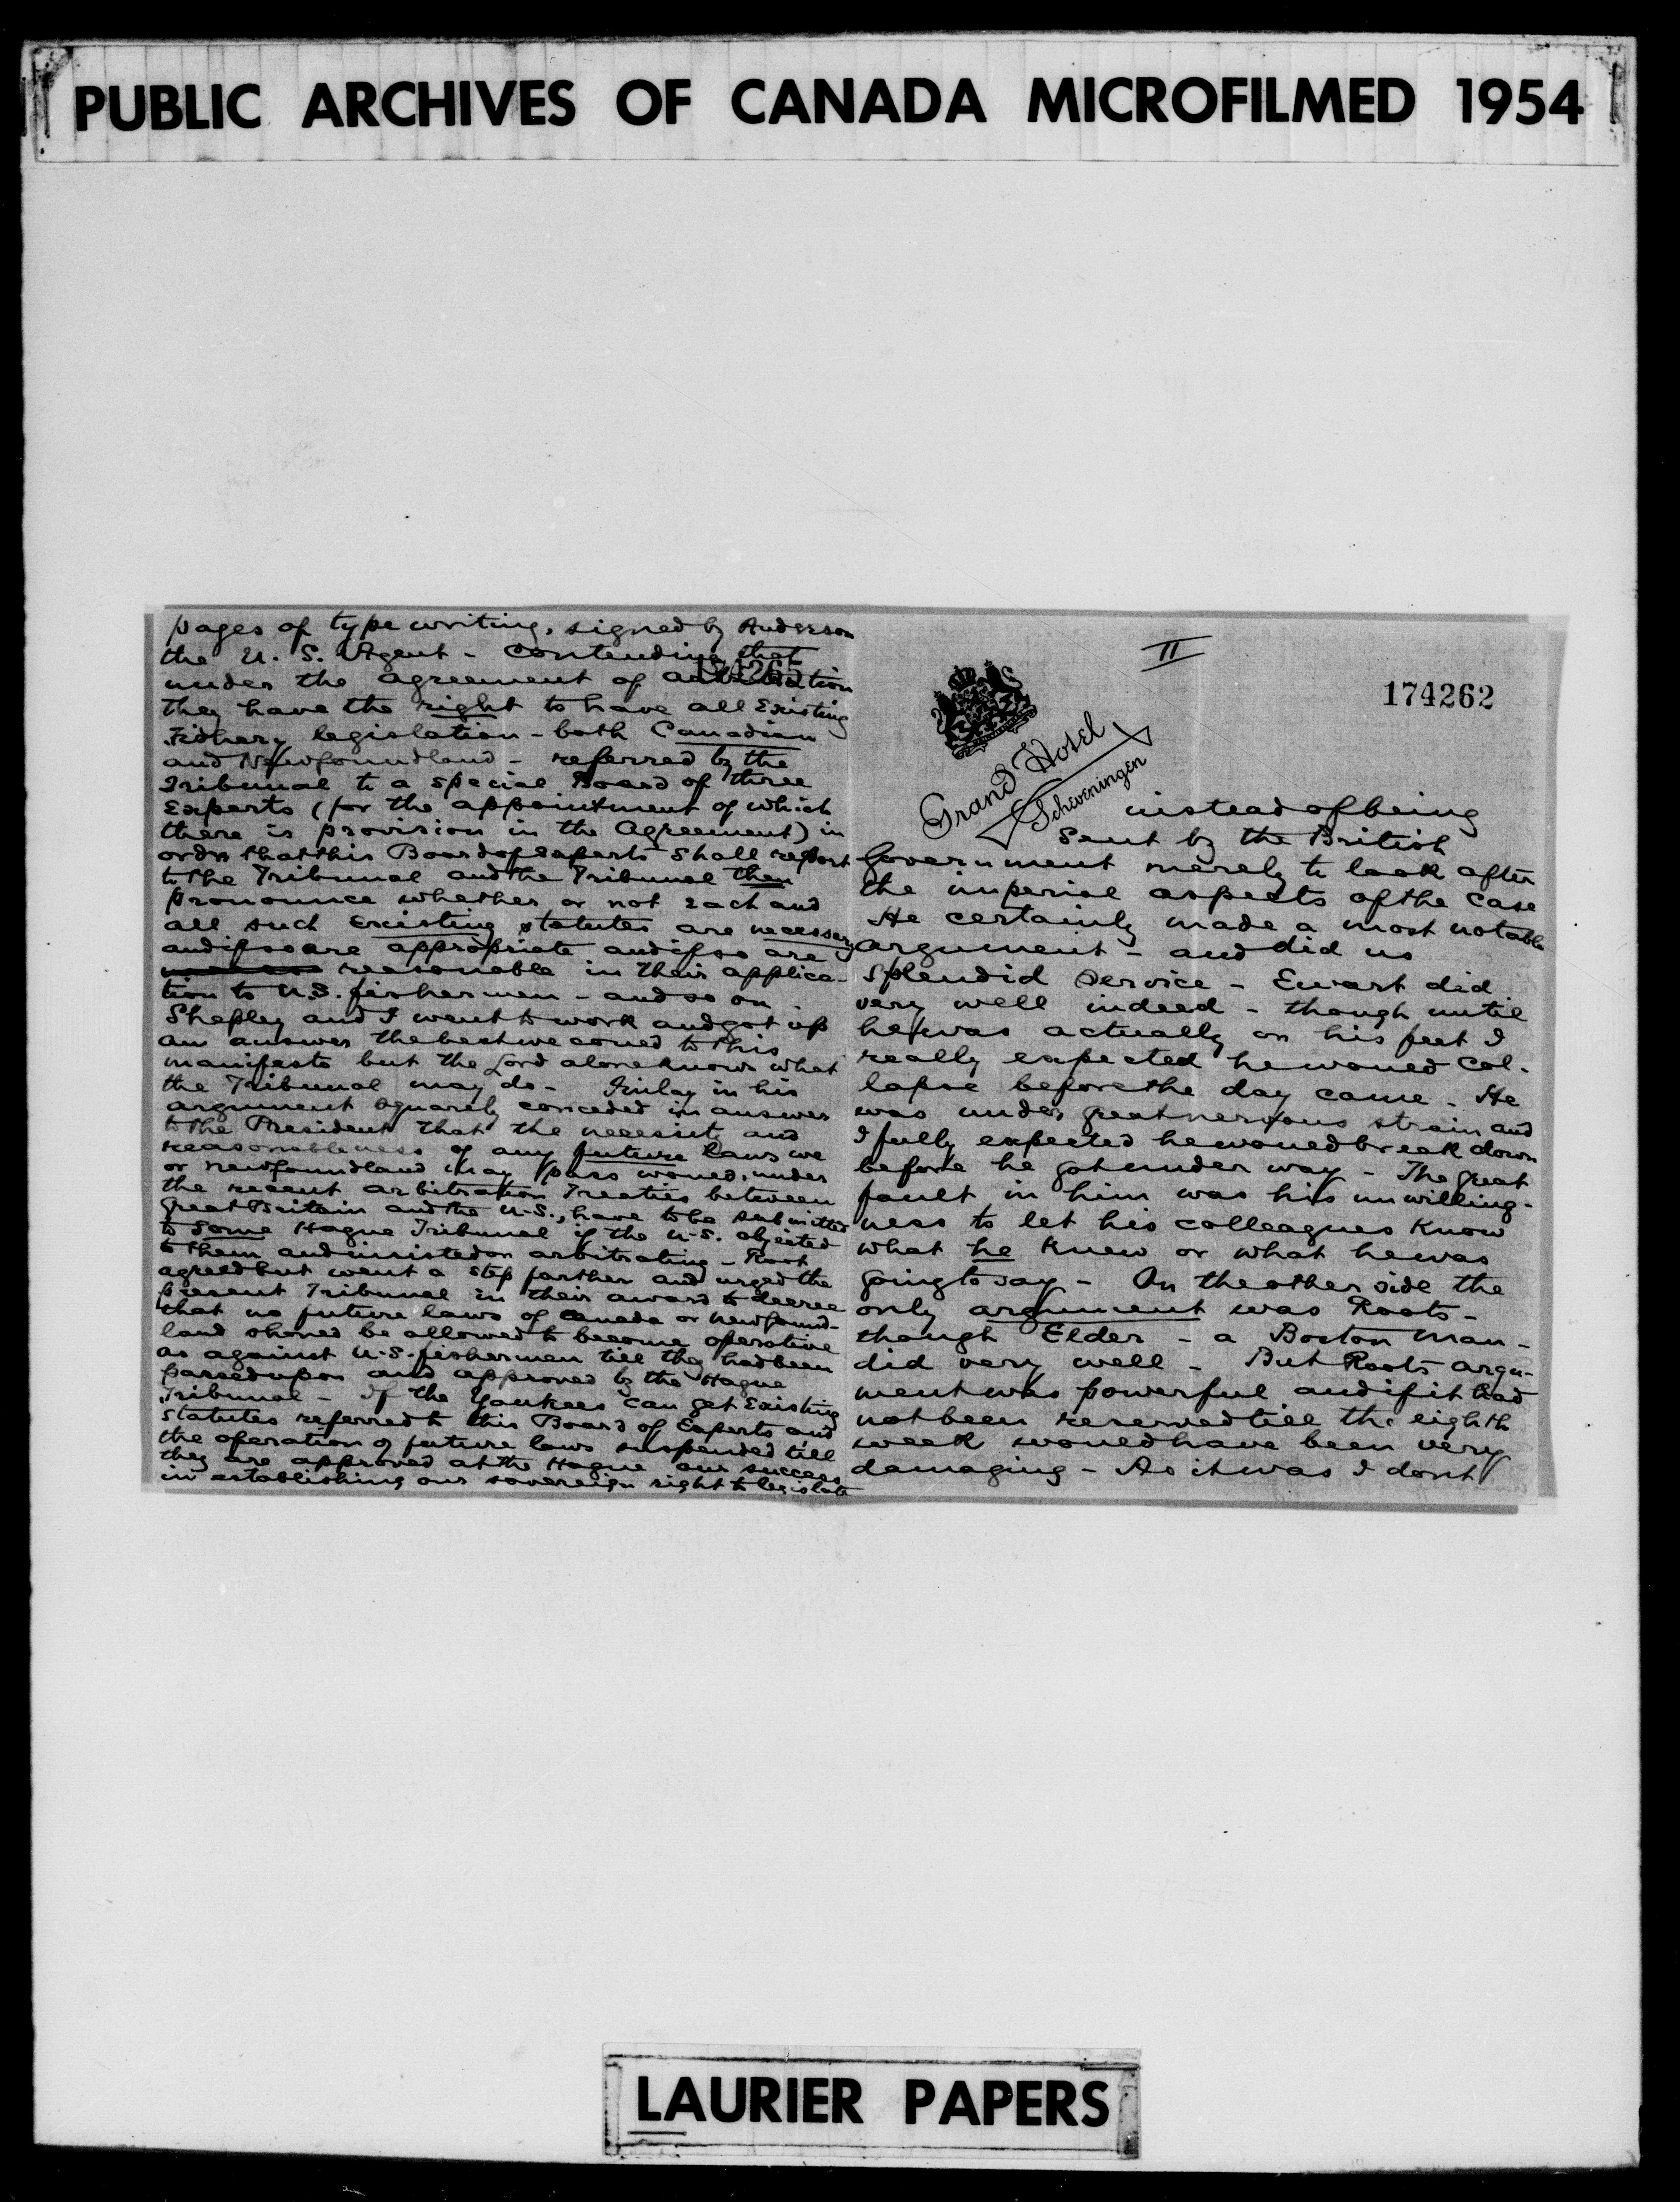 PUBLIC ARCHIVES OF CANADA MICROFILMED 1954
pages of type writing, signed by Anderson
the U. S. Agent - contending that
under the agreement of arbitration
they have the right to have all Existing
Fishery legislation - both Canadian
and Newfoundland - referred by the
Tribunal to a special Board of three
Experts (for the appointment of which
there is provision in the Agreement) in
order that this Board of experts shall report
to the Tribunal and the Tribunal then
pronounce whether or not each and
all such existing statutes are necessary
and if so are appropriate and if so are
reasonable in their applica-
tion to U.S. fishermen - and so on.
Shepley and I went to work and got up
an answer the best we could to this
manifesto but the Lord alone knows what
the Tribunal may do - Finlay in his
argument squarely conceded in answer
to the President that the necessity and
reasonableness of any future laws we
or Newfoundland may pass would, under
the recent arbitration Treaties between
Great Britain and the U.S., have to be submitted
to some Hague Tribunal if the U.S. objected
to them and insisted on arbitrating - Root
agreed but went a step farther and urged the
present Tribunal in their award to decree
that no future laws of Canada or Newfound-
land should be allowed to become operative
as against U.S. fishermen till they had been
passed upon and approved by the Hague
Tribunal - If the Yankees can get Existing
Statutes referred to this Board of Experts and
the operation of future laws suspended till
they are approved at the Hague our success
in establishing our sovereign right to legislate
II
174262
Grand Hotel
Scheveningen
instead of being
sent by the British
Government merely to look after
the imperial aspects of the case
He certainly made a most notable
argument - and did us
splendid service - Ewart did
very well indeed - though until
he was actually on his feet I
really expected he would col-
lapse before the day came - He
was under great nervous strain and
I fully expected he would break down
before he got under way - The great
fault in him was his unwilling-
ness to let his colleagues know
what he knew or what he was
going to say - On the other side the
only argument was Roots -
though Elder - a Boston man -
did very well - But Roots argu-
ment was powerful and if it had
not been reserved till the eighth
week would have been very
damaging - As it was I dont
LAURIER PAPERS